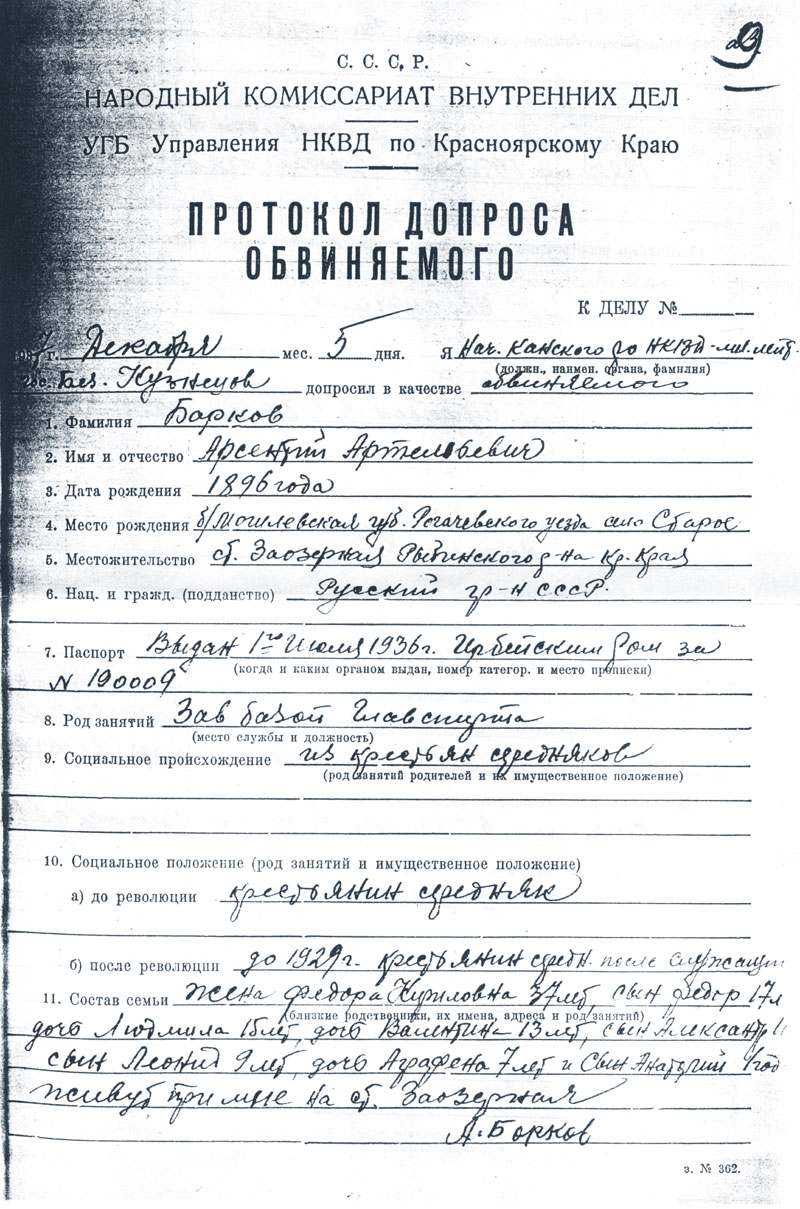 29
С. С. С. Р.
НАРОДНЫЙ КОМИССАРИАТ ВНУТРЕННИХ ДЕЛ
УГБ Управления НКВД по Красноярскому Краю
ПРОТОКОЛ ДОПРОСА
ОБВИНЯЕМОГО
К ДЕЛУ №
7 г. Декабря мес. 5 дня. Я Нач. Канского ро НКВД - мл. лейт.
(должн., наимен. органа, фамилия)
гос. Без. Кузнецов допросил в качестве обвиняемого
1. Фамилия Барков
2. Имя и отчество Арсентий Артемьевич
3. Дата рождения 1896 года
4. Место рождения б/Могилевская губ. Рогачевского уезда село Старое
5. Местожительство ст. Заозерная Рыбинского р-на Кр. Края
6. Нац. и гражд. (подданство) Русский гр-н СССР.
7. Паспорт Выдан 1го Июля 1936 г. Ирбейским Ром за
(когда и каким органом выдан, номер категор. и место прописки)
N 190009
8. Род занятий Зав базой Главспирта
(место службы и должность)
9. Социальное происхождение из крестьян средняков
(род занятий родителей и их имущественное положение)
10. Социальное положение (род занятий и имущественное положение)
а) до революции крестьянин средняк
б) после революции до 1929 г. крестьянин средн. после служащий
11. Состав семьи жена Федора Куриловна 37 лет, сын Федор 17 л
(близкие родственники, их имена, адреса и род занятий)
дочь Людмила 15 лет, дочь Валентина 13 лет, сын Александр 11
сын Леонид 9 лет, дочь Аграфена 7 лет и Сын Анатолий 1 год
живут при мне на ст. Заозерная
А. Борков
з. № 362.